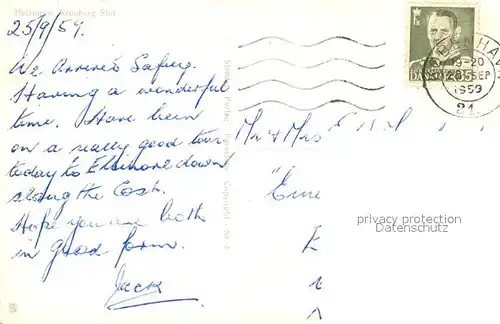 Helsingør Kronborg Slot
25/9/59.
We Arrived Safely.
Having a wonderful
time. Have been
on a really good tour
today to Elsinore down
along the Cost.
Hope you are both
in good form.
Jack
Mr & Mrs E
"Eme
E
privacy protection
Datenschutz
KØBENHAVN
19-20
SEP
1959
21.
DANMARK